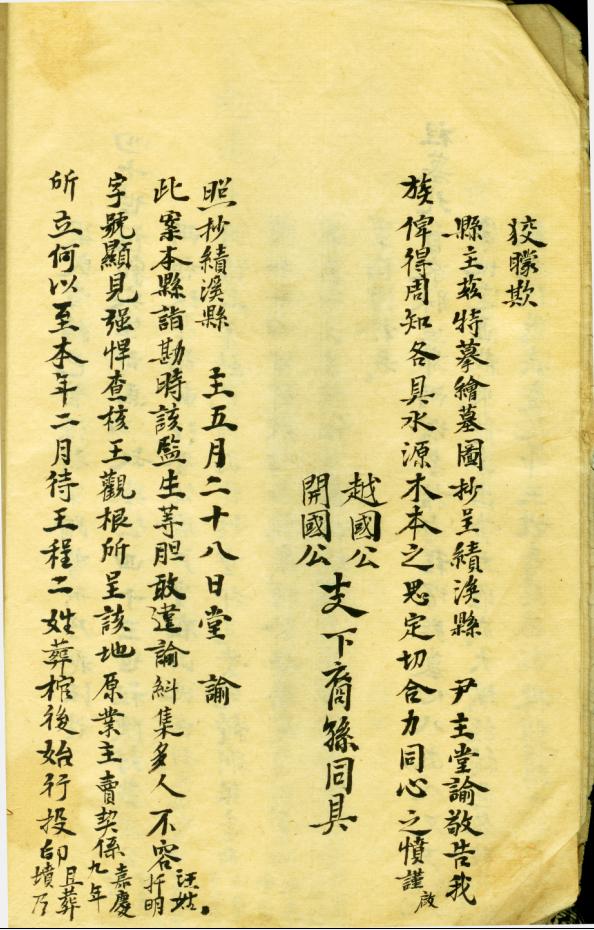 狡矇欺
縣主茲特摹繪墓圖抄呈績溪縣 尹主堂諭敬告我
族俾得周知各具水源木本之思定切合力同心之憤謹啟
越國公
開國公
支下裔孫同具
照抄績溪縣 主五月二十八日堂 諭
此案本縣詣勘時該監生等胆敢違諭糾集多人不容汪姓扦明
字號顯見强悍查核王觀根所呈該地原業主賣契係嘉慶九年
所立何以至本年二月待王程二姓葬棺後始行投印且葬墳乃